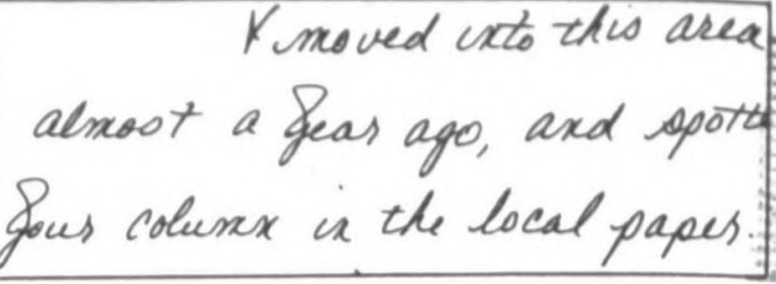 I moved into this area
almost a year ago, and spotte
your column in the local paper.